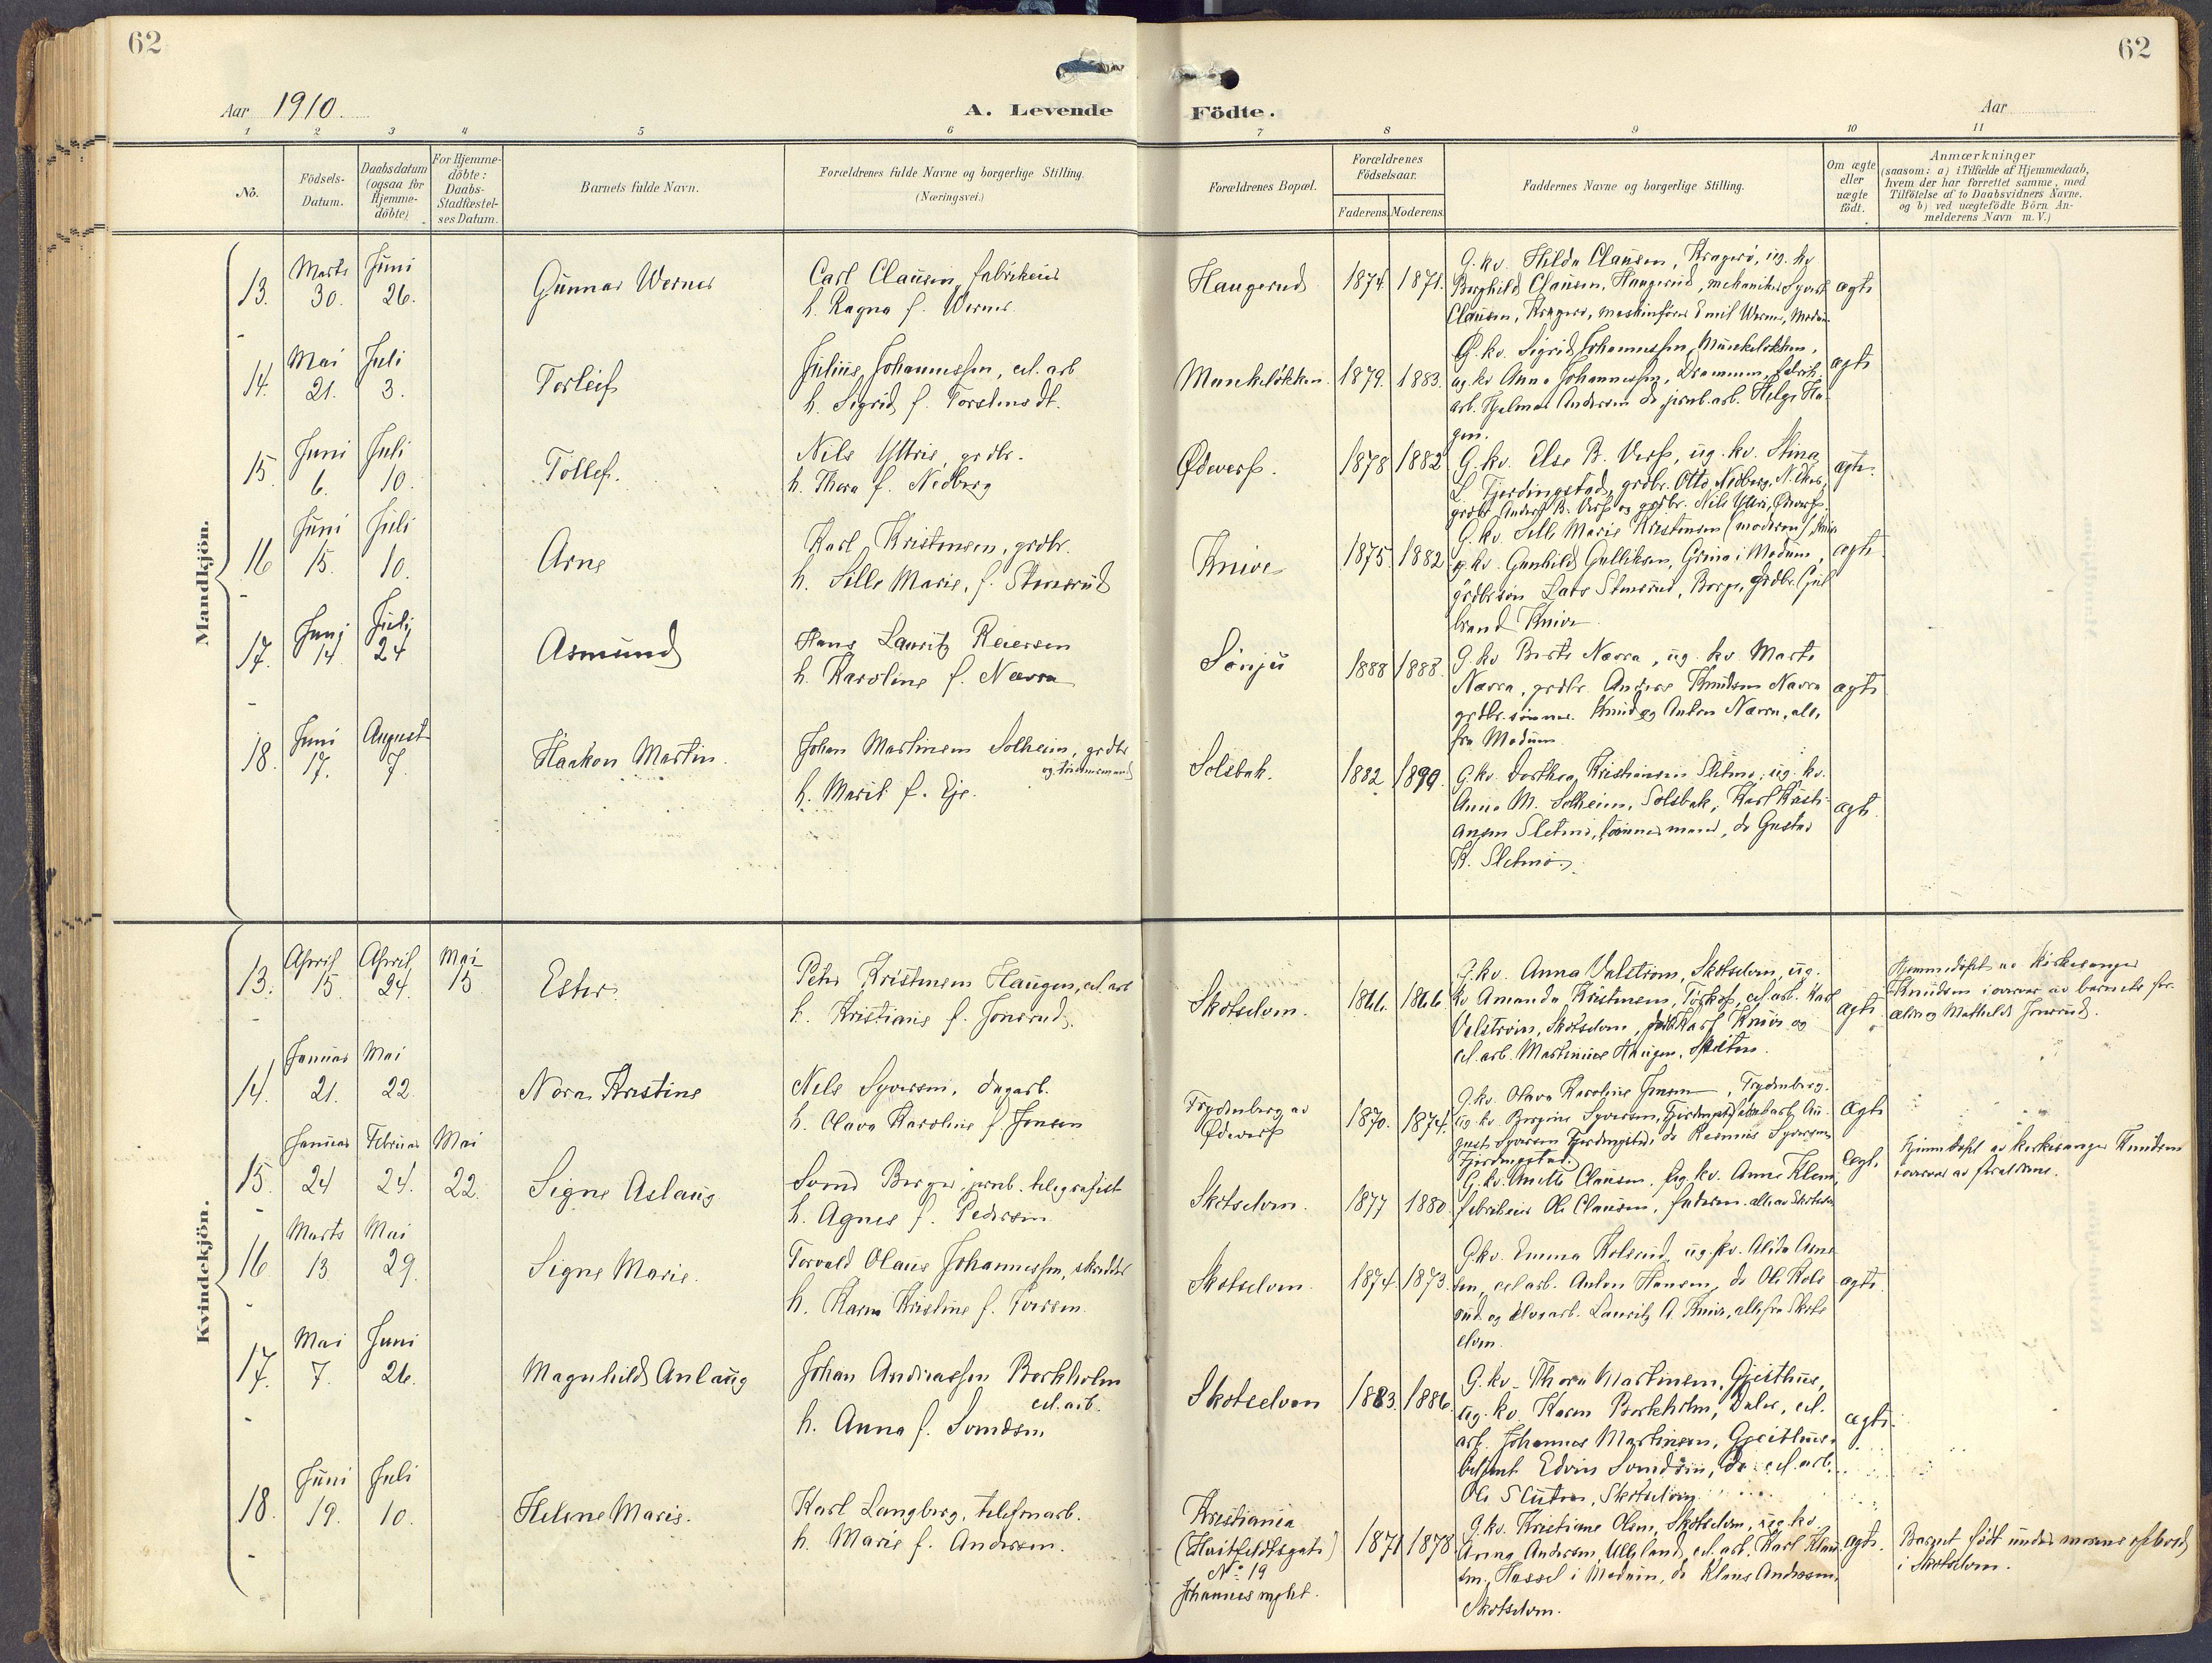 62
62
Aar 1910.
A. Levende Födte.
Aar
1 2 3 4 5 6 7 8 9 10 11
No.
Födsels-Datum.
Daabsdatum (ogsaa for Hjemme-döbte)
For Hjemme-döbte: Daabs-Stadfæstel-ses Datum.
Barnets fulde Navn.
Forældrenes fulde Navne og borgerlige Stilling. (Næringsvei.)
Forældrenes Bopæl.
Forældrenes Födselsaar.
Faderens. Moderens.
Faddernes Navne og borgerlige Stilling.
Om ægte eller uægte födt.
Anmærkninger
(saasom: a) i Tilfælde af Hjemmedaab,
hvem der har forrettet samme, med
Tilföielse af to Daabsvidners Navne.
og b) ved uægtefödte Börn An-
melderens Navn m. V.)
Mandkjön.
13. Marts 30. Juni 26. Gunnar Werner
Carl Clausen, fabrikeier
h. Ragna f. Werner.
Haugerud 1874 1871.
G. kv. Hilda Clausen, Kragerø, ug. kv
Borghild Clausen, Haugerud, mekaniker Syvert
Clausen, Kragerø, maskinfører Emil Werner, Modum
ægte
14. Mai 21. Juli 3. Torleif
Julius Johannessen, cel. arb
h. Sigrid f. Torstensdt.
Munkeløkken. 1879. 1883.
G. kv. Sigrid Johannessen, Munkeløkken,
ug. kv Anna Johannessen, Drammen, fabrik-
arb. Hjalmar Andersen do jernb.arb. Helge Ha-
gen.
ægte
15 Juni 6. Juli 10. Tollef.
Nils Ytteri, grdbr.
h. Thora f. Nedberg
Ødeverp. 1878 1882
G. kv. Else B. Verp, ug. kv. Stina
L. Fjerdingstad, grdbr. Otto Nedberg, N. Eker,
grdbr Anders B. Verp og grdbr. Nils Ytteri, Ødeverp.
ægte.
16 Juni 15. Juli 10. Arne
Karl Kristensen, grdbr.
h. Sille Marie, f. Stensrud
Knive 1875 1882
G. kv. Sille Marie Kristensen (moderen), Knive
g. kv. Gunhild Gulliksen, Grina i Modum,
grdbr.søn Lars Stensrud, Borge, grdbr. Gul
brand Knive
ægte
17. Juni 14 Juli 24 Asmund
Hans Lauritz Reiersen
h. Karoline f. Næsra
Sønju 1888 1888.
G. kv Berte Næsra, ug. kv Marte
Næsra, grdbr. Anders Knudsen Næsra
grdbr.sønne. Knud og Anton Næsra, alle
fra Modum
ægte
18. Juni 17. August 7. Haakon Martin.
Johan Martinsen Solheim, grdbr
og tømmermand
h. Marit f. Eje.
Solsbak. 1882 1890.
G. kv. Dorthea Kristiansen Sletmo, ug. kv.
Anna M. Solheim, Solsbak, Karl Kristi-
ansen Sletmo, tømmermand, do Gustav
K. Sletmo.
ægte.
Kvindekjön.
13. April 15. April 24. Mai 15 Ester.
Peter Kristensen Haugen, cel. arb
h. Kristiane f. Jonsrud.
Skotselven. 1866. 1866
G. kv. Anna Valstrøm, Skotselven, ug.
kv Amanda Kristensen, Torkop, cel. arb. Karl
Valstrøm, Skotselven, Karl Knive og
cel. arb. Martinius Haugen,
ægte
Hjemmedøbt av kirkesanger
Knudsen i overvær av barnets for-
ældre og Mathilde Jonsrud.
14. Januar 21. Mai 22. Nora Kristine
Nils Syversen, dagarb.
h. Olava Karoline f Jensen
Frydenberg av Ødeverp 1870. 1874.
G. kv. Olava Karoline Jensen, Frydenberg.
ug kv Bergine Syversen, Fjerdingstad, fabrikarb. Au-
gust Syversen Fjerdingstad, do Rasmus Syversen
Fjerdingstad.
ægte
15. Januar 24 Februar 24. Mai 22. Signe Aslaug
Svend Berger, jernb. telegrafist
h. Agnes f. Pedersen
Skotselven. 1877 1880.
G. kv. Anette Clausen, ug. kv. Anna Klem,
fabrikeier Ole Clausen, faderen. alle av Skotselven
ægte.
Hjemmedøbt av kirkesanger Knudsen
i overvær av forældrene.
16 Marts 13 Mai 29. Signe Marie.
Torvald Olaus Johannessen, skrædder
h. Karen Kristine f. Iversen.
Skotselven. 1874. 1873.
G. kv. Emma Kolsrud, ug. kv. Alida Arne
sen, cel arb. Anton Hansen, do Ole Kols
rud og elvearb. Lauritz A. Knive, alle fra Skots
elven.
ægte.
17. Mai 7. Juni 26. Magnhild Anlaug
Johan Andreassen Borkholm
cel. arb.
h. Anna f. Svendsen
Skotselven 1883. 1886.
G. kv. Thora Martinsen, Gjeithus,
ug. kv. Karen Borkholm, Daler, cel.
arb. Johannes Martinsen, Gjeithus,
betjent Edvin Svendsen, do cel. arb.
Ole Sluten, Skotselven
ægte.
18. Juni 19. Juli 10. Helene Marie.
Karl Langberg, telefonarb.
h. Marie f. Andersen.
Kristiania
(Huitfeldtsgate)
No 19
Johannes meht.
1871 1878
G. kv. Kristiane Olsen, Skotselven, ug. kv
Anna Andersen, Ulleland, cel. arb. Karl Klau-
sen, Hassel i Modum, do Klaus Andersen,
Skotselven.
ægte.
Barnet født under morens ophold
i Skotselven.